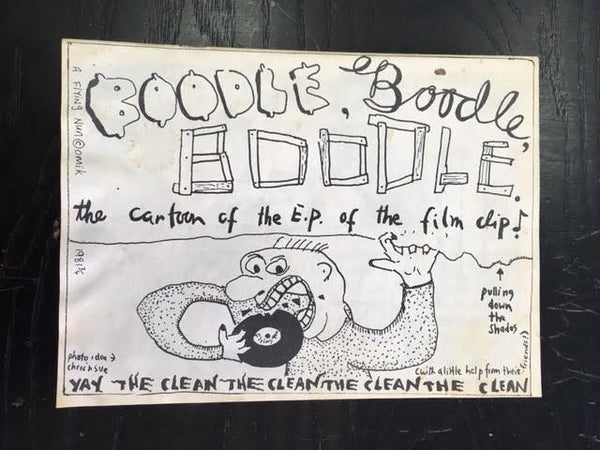 BOODLE, Boodle,
BOODLE.
the cartoon of the E.P. of the film clip!
A FLYING NUN ©omik
1981¾
pulling
down
the
shades
photo idea →
chris & sue
(with a little help from their friends!)
YAY THE CLEAN THE CLEAN THE CLEAN THE CLEAN